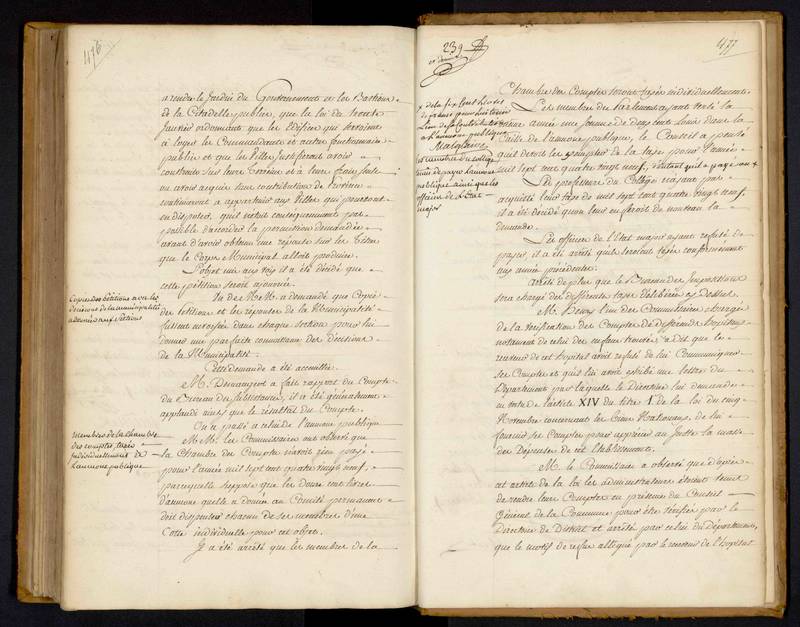 476
a rendre le Jardin du Gouvernement et les Bastions
de la Citadelle publics, que la loi du trente
Janvier adonnant que les Edifices qui servoient
a loger les Commandants et autres fonctionnaires
publics et que les Villes justifieront avoir
construits sur leur terrein et à leurs frais seuls
ou avoir acquis sans contribution de Province
continueront a appartenir aux Villes qui pourront
en disposer, qu'il n'étoit conséquemment pas
possible d'accorder la permission demandée
avant d'avoir obtenu une réponse sur les Titres
que le Corps Municipal alloit produire.
L'objet mis aux voix il a été décidé que
cette pétition seroit ajournée.
Copies des Pétitions avec les
décisions de la municipalité
a donner aux sections
Un de M.M. a demandé que Copie
des Petitions et les réponses de la Municipalité
fussent envoiées dans chaque section pour lui
donner une parfaite connoissance des décisions
de la Municipalité.
Cette demande a été accueillie.
M. Demangeot a fait rapport du Compte
du Bureau des Subsistances, il a été généralement
applaudi ainsi que le résultat du Compte.
On a passé a celui de l'aumone publique
membres de la chambre
des comptes, taxés
individuellement à
l'aumone publique
M.M. les Commissaires ont observé que
la Chambre des Comptes n'avoit rien payé
pour l'année mil sept cent quatre vingt neuf,
parcequ'elle suppose que les douze cent livres
d'aumone qu'elle a donnés au Comité permanent
doit dispenser chacun de ses membres d'une
Cotte individuelle pour cet objet.
Il a été arrêté que les membres de la
477
239
Chambre des Comptes seront taxés individuellement.
Les membres du Parlement ayant versé la
même année une somme de deux cents louis dans la
Caisse de l'aumone publique, le Conseil a pensé
qu'il devoit les exempter de la taxe pour l'année
mil sept cent quatre vingt neuf,
Les professeurs du College n'ayant pas
acquitté leurs taxes de mil sept cent quatre vingt neuf,
il a été décidé qu'on leur en feroit de nouveau la
demande.
Les officiers de l'Etat major ayant refusé de
payer, il a été arrêté qu'ils seroient taxés conformément
aux années précédentes.
à l'aumone publique
les membres du college
tenus de payer l'aumone
publique ainsi que les
officiers de l'Etat
major
Arrêté de plus que le Bureau des Impositions
sera chargé des différentes taxes délibérées cy dessus.
M. Henry l'un des Commissaires chargés
de la vérification des Comptes des différents hopitaux
notamment de celui des enfans trouvés, a dit que le
receveur de cet hopital avoit refusé de lui Communiquer
ses Comptes et qu'il lui avoit exhibé une lettre du
Département par laquelle le Directoire lui demande
en vertu de l'article XIV du titre 1er de la loi du cinq
Novembre concernant les biens Nationaux, de lui
fournir ses Comptes pour apprécier au juste la masse
des Dépenses de cet Etablissement.
M. le Commissaire a observé que d'après
cet article de la loi les administrateurs étoient tenus
de rendre leurs Comptes en présence du Conseil
Général de la Commune pour être vérifiés par le
Directoire de District et arrêtés par celui du Département,
que le motif de refus allégué par le receveur de l'hopital